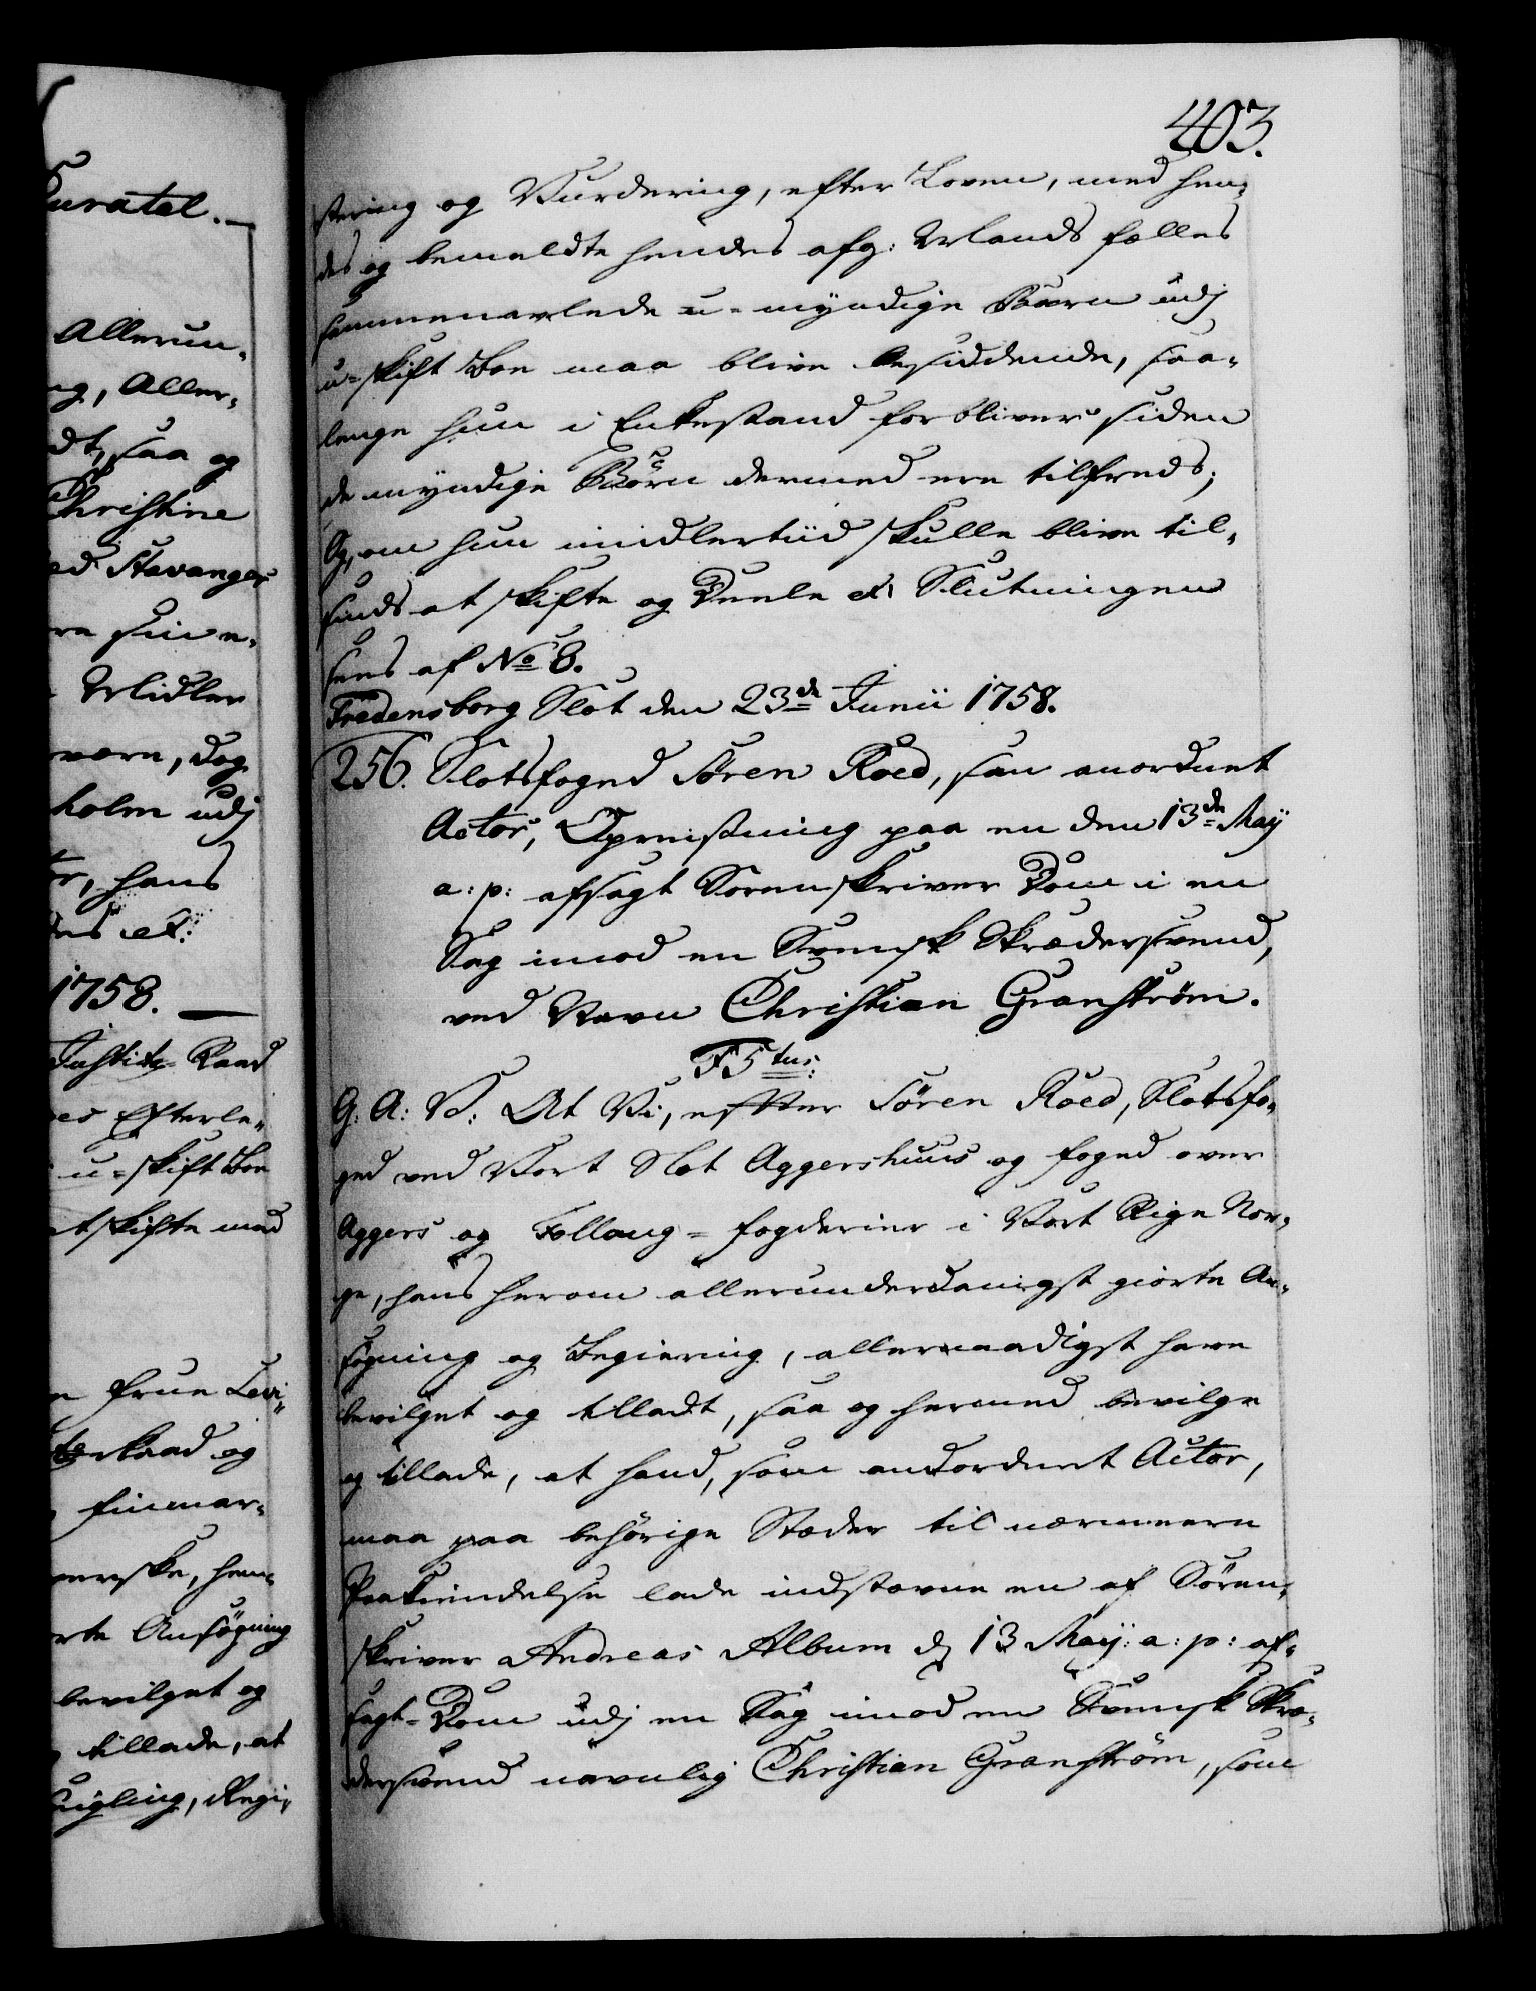 Curatel.
Allerun-
ng, Aller-
dt, saa og
Christine
ed Stavanger
Midler
værn, dog
holm udj
hans
1758.
Justitz-Raad
Efterle-
u-skift Boe
at skifte med
og
Finmar-
rte Ansøgning
bevilget og
tillade, at
Regi-
403.
stering og Vurdering, efter Loven, med hen-
des og bemeldte hendes afg: Mands fælles
sammenavlede u-myndige Børn udj
u-skift Boe maa blive besiddende, saa-
lenge hun i Enkestand forbliver siden
de myndige Børn dermed ere tilfreds;
Og, om hun imidlertiid skulle blive til-
sinds at skifte og Deele &c. Slutningen
sees af No 8.
Fredensborg Slot den 23de Junii 1758.
256. Slotsfoged Søren Roed, som anordnet
Actor, Opreisning paa en den 13de Maij
a: p: afsagt Sorenskriver Dom i en
Sag imod en Svensk Skrædersvend,
ved Navn Christian Granstrøm.
F5tus:
G: A: V: At Vi, efter Søren Roed, Slotsfo-
ged ved Vort Slot Aggershuus og foged over
Aggers og Follaug-fogderier i Vort Rige Nor-
ge, hans herom allerunderdanigst giorte An-
søgning og Begiering, allernaadigst have
bevilget og tilladt, saa og hermed bevilge
og tillade, at hand, som andordnet Actor,
maa paa behørige Stæder til nærmeere
Paakiendelse lade indstævne en af Søren-
skriver Andreas Album d. 13 Maij: a: p: af-
sagt-Dom udj en Sag imod en Svensk Skræ-
dersvend navnlig Christian Granstrøm, som